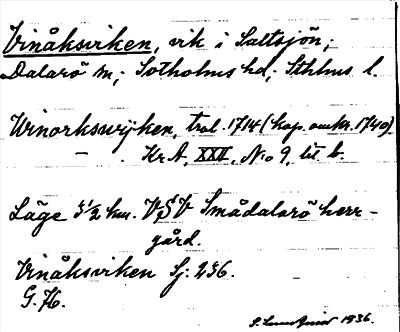 Vinåksviken, vik i Saltsjön;
Dalarö sn; Sotholms hd; Sthlms l.
Winorkswijken, trol. 1714 (kop. omkr. 1740)
— . Kr A, XXII, No 9, lit b.
Läge 5 1/2 km. VSV Smådalarö herr-
gård.
Vinåksviken Sj: 236.
G. 76.
1936.